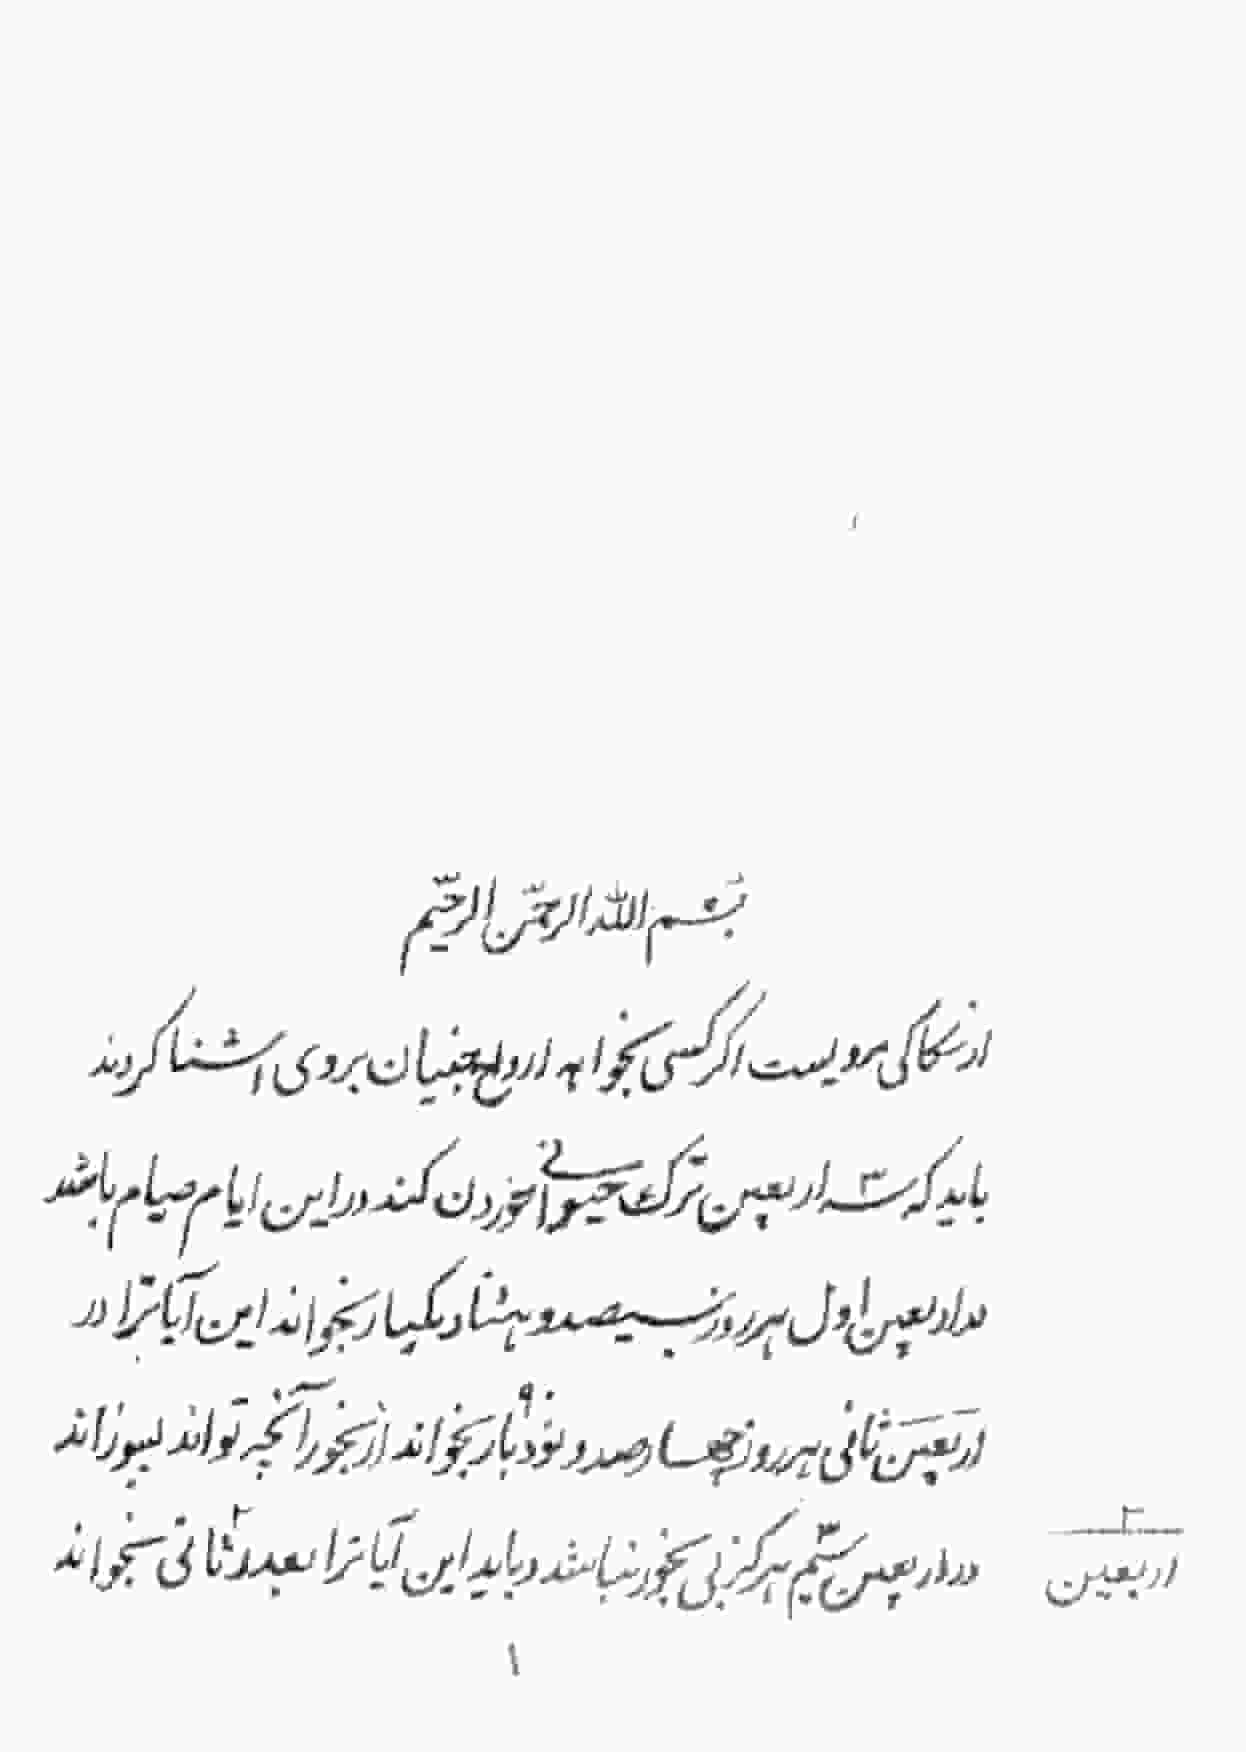 بسم الله الرحمن الرحیم
از سکاکی مرویست اکر کسی بخواهد ارواح جنیان بروی اشنا کردند
باید که سه ۳ اربعین ترک حیوانی خوردن کند در این ایام صیام باشد
در اربعین اول هر روز سیصد و هشتاد و یکبار بخواند این آیاترا در
اربعین ثانی هر روز چهار صد و نود ۹۰ بار بخواند از بخور آنچه تواند بسوزاند
در اربعین سیم ۳ هرکز بی بخور نباشد و باید این آیاترا بعدد ثانی ۲ بخواند
۲
اربعین
۱